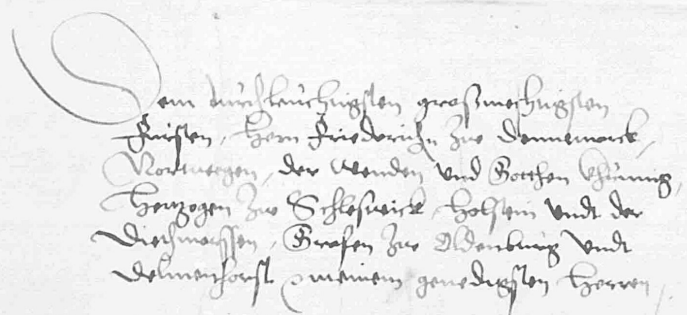 Dem durchleuchtigsten großmechtigsten
Fürsten, Hern Friederichn zue Dennemarck,
Norwegen, der Wenden und Gotthen khünnig,
Hertzogen zue Schleswick, Holstein undt der
Diethmarssen, Grafen zue Oldenburg undt
Delmenhorst meinem genedigsten Herren